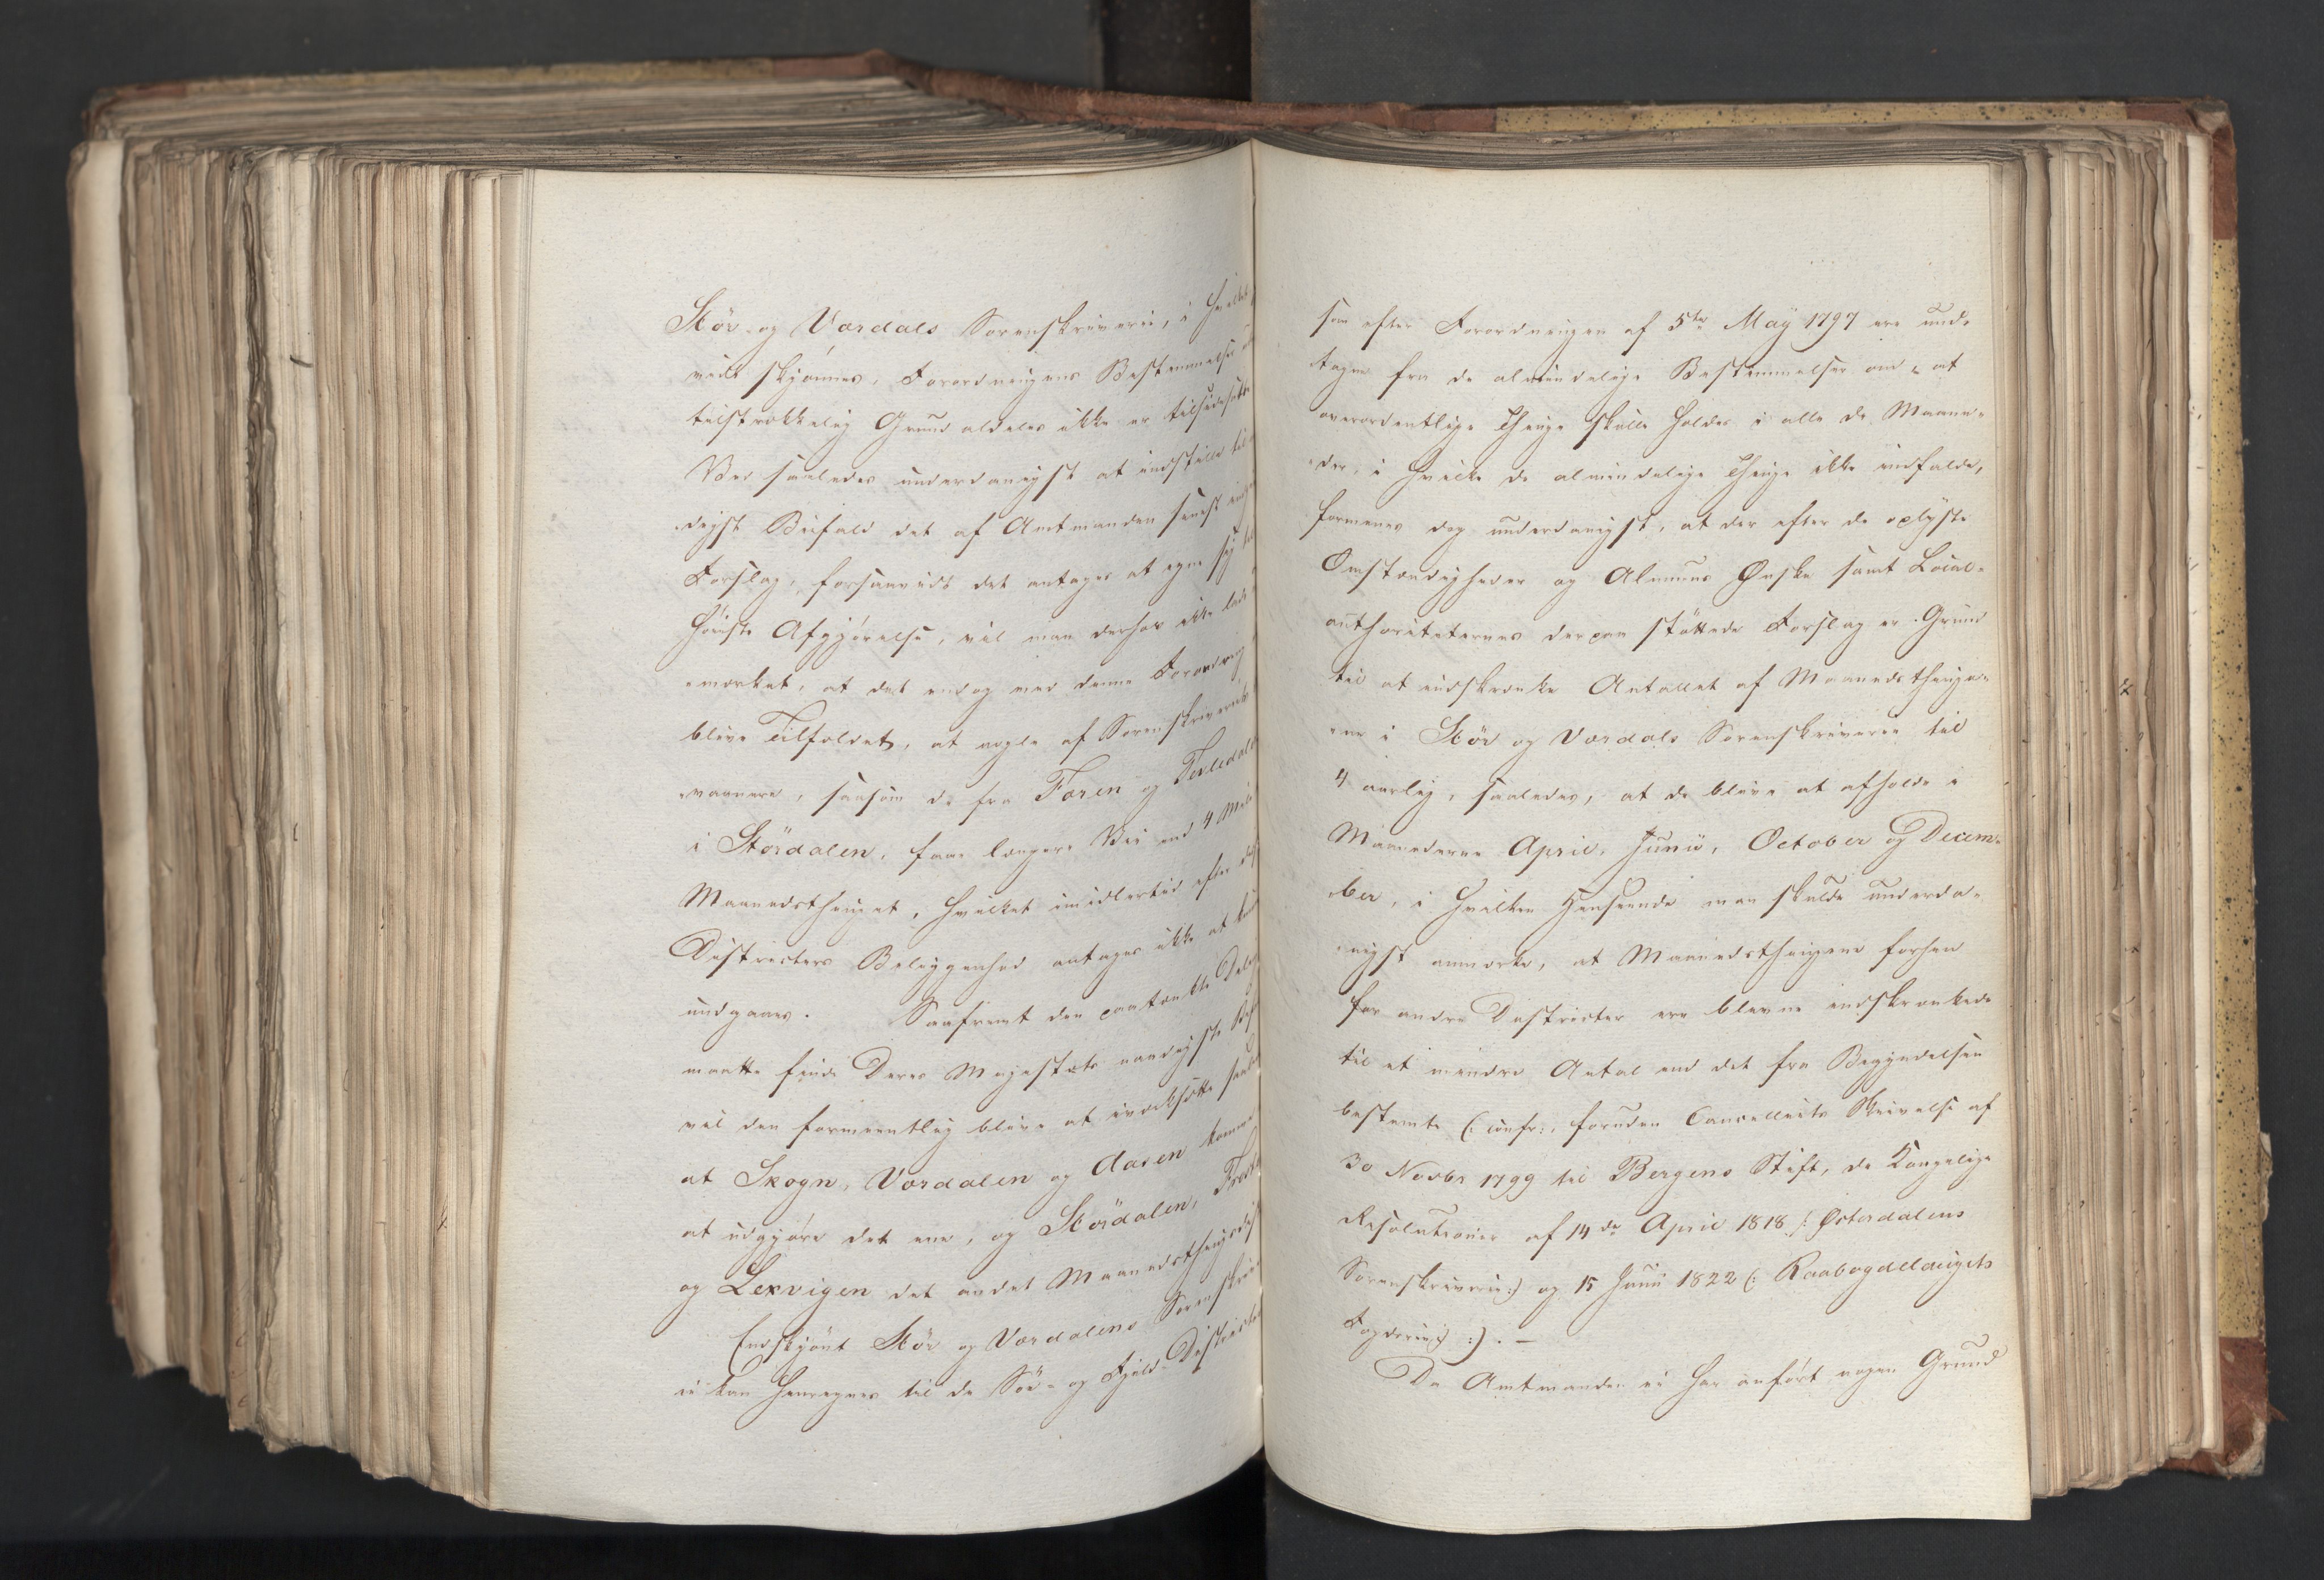 Stör- og Værdals Sorenskriverie, i hvilket
vidt skjönnes, Forordningens Bestemmelse
tilstrækkelig Grund aldeles ikke er tilsidesatte
Ved saaledes underdanigst at indstille til
-digst Bifald det af Amtmanden senest
Forslag, forsaavidt det antages at egne sig til
höieste Afgjörelse, vil man derhos ikke lade
-mærket, at det endog med denne Forordning
blive Tilfældet, at nogle af Sorenskriveriets
-vaanere, saasom de fra Færen og
i Stördalen, faae længere Vei end 4 Mile
Maanedsthinget, hvilket imidlertid efter
Districters Beliggenhed antages ikke at kunne
undgaaes. Saafremt den paatænkte Deling
maatte finde Deres Majestæts naadigste
vil den formeentlig blive at iværksætte
at Skogn, Værdalen og Aasen komme
at udgjöre det ene, og Stördalen, Frosten
og Lexvigen det andet Maanedsthings
Endskjönt Stör og Værdalens Sorenskriverie
ei kan henregnes til de Söe- og Fjeld-Districter
som efter Forordningen af 5te Maÿ 1797 ere und-
tagne fra de almindelige Bestemmelser om, at
overordentlige Thinge skulle holdes i alle de Maane-
-der, i hvilke de almindelige Thinge ikke indfalde,
formenes dog underdanigst, at der efter de oplyste
Omstændigheder og Almuens Ønske samt Local-
authoriteternes derpaa stöttede Forslag er Grund
til at indskrænke Antallet af Maanedsthinge-
-ne i Stör og Værdals Sorenskriverie til
4 aarlig, saaledes, at de blive at afholde i
Maanederne April, Junii, October og Decem-
-ber, i hvilken Henseende man skulde underda-
-nigst anmærke, at Maanedsthingene forhen
for andre Districter ere blevne indskrænkede
til et mindre Antal end det fra Begyndelsen
bestemte (: confr:, foruden Cancelliets Skrivelse af
30 Novbr 1799 til Bergens Stift, de Kongelige
Resolutioner af 14de April 1818 (: Østerdalens
Sorenskriverie:) og 15 Junii 1822 (: Raabygdelaugets
Fogderie:) :). —
Da Amtmanden ei har anfört nogen Grund